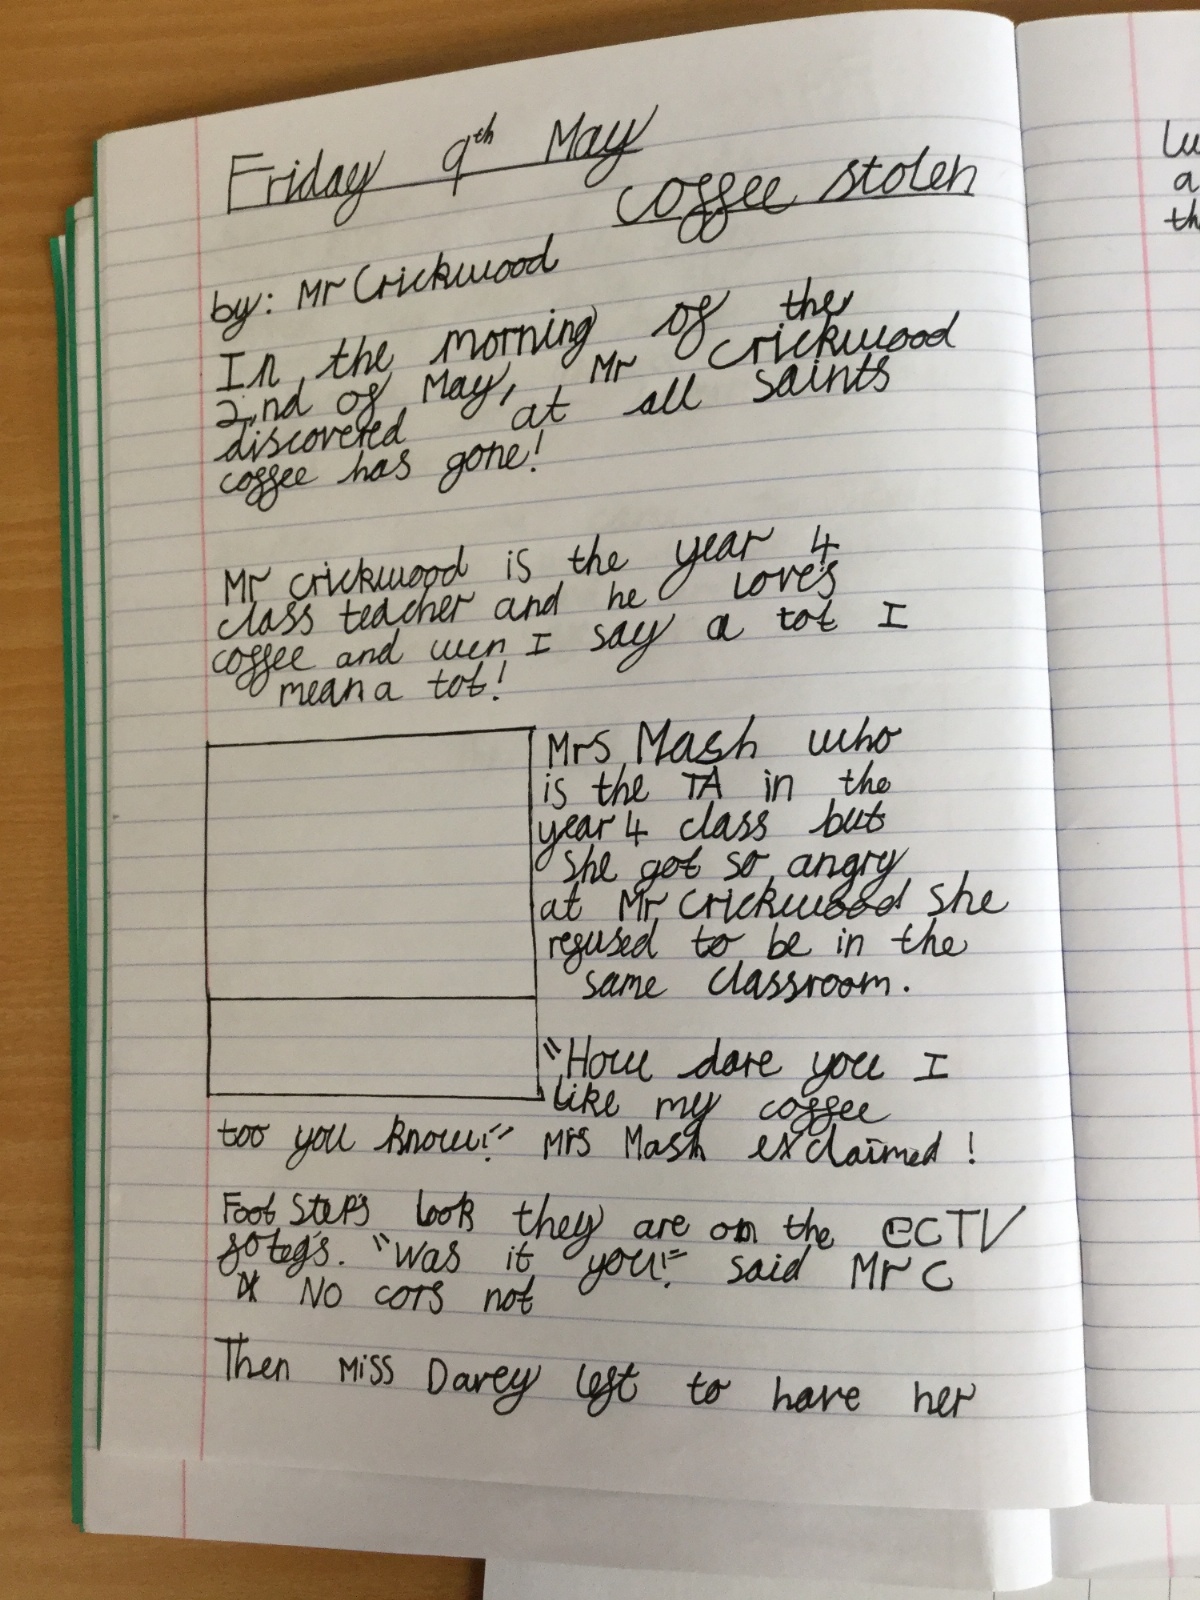 Friday 9th May
coffee stolen
by: Mr Crickwood
In the morning of the
2nd of May, Mr Crickwood
discovered at all saints
coffee has gone!
Mr Crickwood is the year 4
class teacher and he loves
coffee and wen I say a tot I
mean a tot!
Mrs Mash who
is the TA in the
year 4 class but
she got so angry
at Mr Crickwood she
refused to be in the
same classroom.
"How dare you I
like my coffee
too you know!" Mrs Mash exclaimed!
Foot steps look they are on the CCTV
"Was it you!" said Mr C
No cors not
Then Miss Darey left to have her
lu
a
th